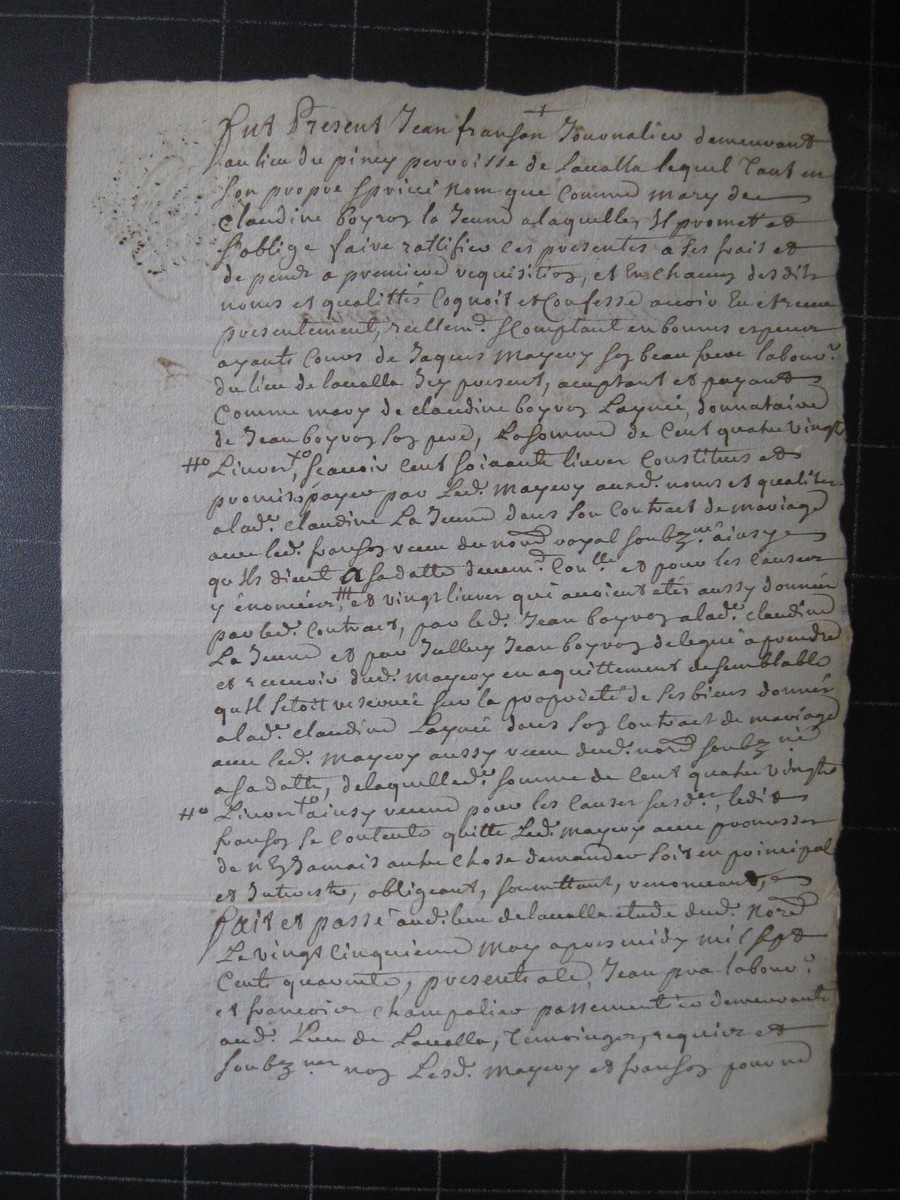 fut Present Jean franson Journalier demeurant
au lieu du piney parroisse de Lavalla lequel tant en
son propre & privé nom que Comme mary de
Claudine boyron la Jeune a laquelle Il promet et
s'oblige faire rattifier ces presentes a ses frais et
depens a premiere requisition, et En chacun desdits
noms et qualittés Cognoit et Confesse avoir Eu et receu
presentement, reellemt. & Comptant en bonnes especes
ayants Cours de Jaques Mayery son beau frere labour.r
du lieu de lavalla Icy present, acceptant et payant
Comme mary de claudine boyron Laynée, donnataire
de Jean boyron son pere, La somme de Cent quatre vingt
Livres to. scavoir cent soixante livres Constitues et
promises payer par Led. Mayery aud. noms et qualites
a lad.e Claudine La Jeune dans son Contract de mariage
avec led. franson receu du no.re royal soubz.né ainsy
qu'ils dient a sa datte et pour les Causes
y énoncées, et vingt livres qui avoient étés aussy donnés
par led. Contract, par led. Jean boyron a lad.e Claudine
La Jeune et par Icelluy Jean boyron delegué a prendre
et recevoir dud. Mayery en aquittement de semblable
qu'il s'etoit reservée sur la propriété de ses biens donnés
a lad.e Claudine Laynée dans son Contract de mariage
avec led. Mayery aussy receu dud. no.re soubz.né
a sa datte, de laquelle d.e somme de Cent quatre vingt
Livres to. ainsy receue pour les causes susd.es, ledit
franson se Contente quitte Led. Mayery avec promesse
de n'En Jamais autre chose demander soit en principal
et Interests, obligeant, soumettant, renonceant, &
fait et passé aud. lieu de lavalla etude dud. No.re
Le vingt Cinquieme May apres midy mil sept
Cents quarente, presents a ce, Jean pra labour.r
et francois Champalier passementier demeurants
aud. Lieu de Lavalla, Temoins requis et
soubz.nes non Lesd. Mayery et franson pour ne